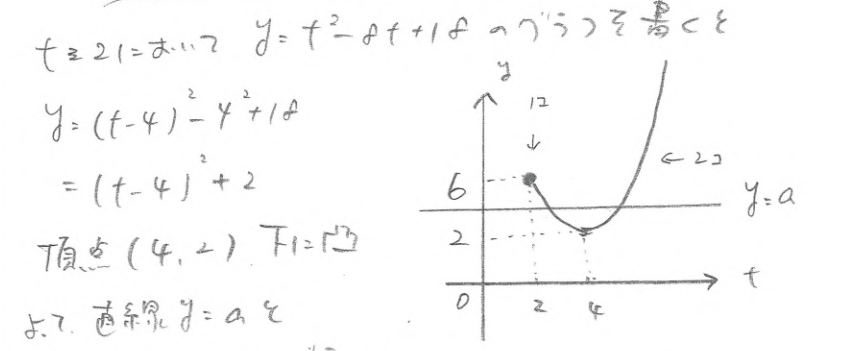 t≧2において y=t²-8t+18 のグラフを書くと
y=(t-4)²-4²+18
=(t-4)²+2
頂点(4,2) 下に凸
よって 直線 y=a と
y
1コ
↓
6
←2コ
y=a
2
t
0
2
4